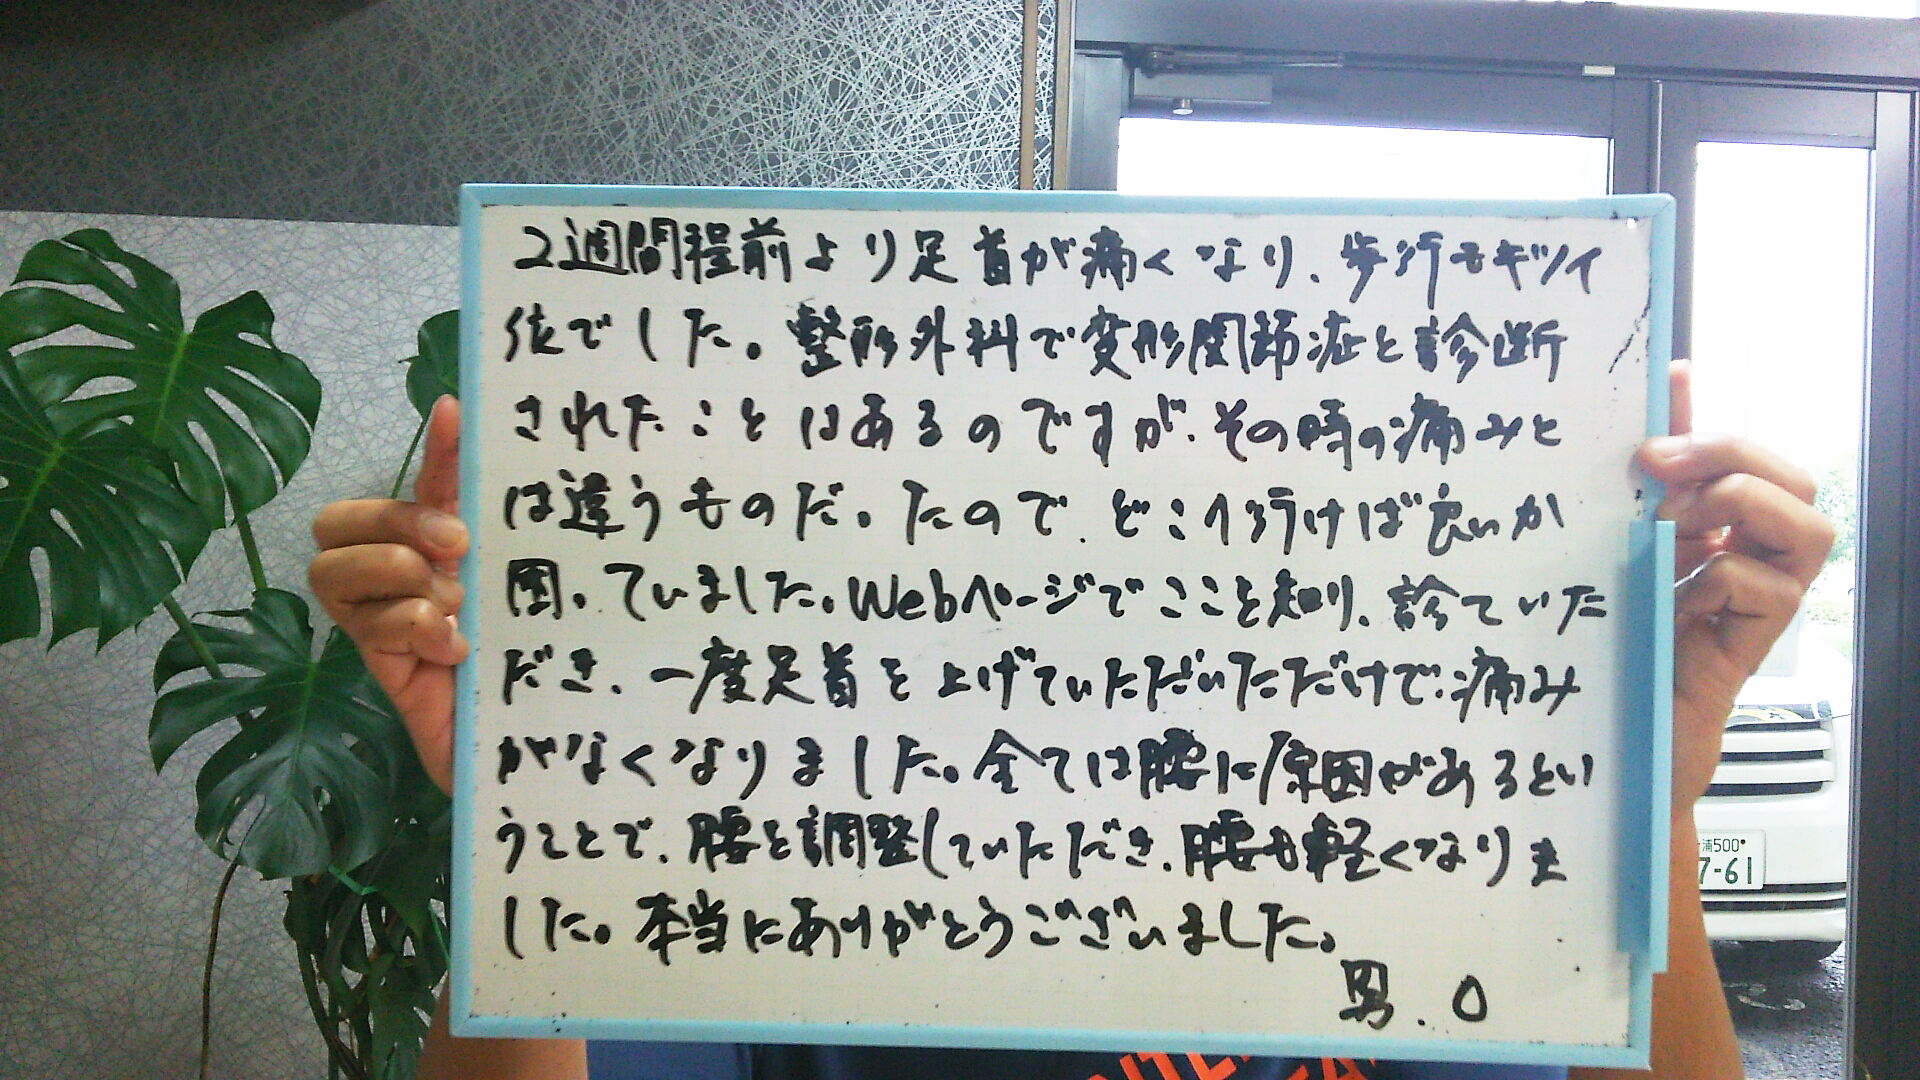 2週間程前より足首が痛くなり、歩行もキツイ
位でした。整形外科で変形関節症と診断
されたことはあるのですが、その時の痛みと
は違うものだったので、どこへ行けば良いか
困っていました。Webページでここを知り、診ていた
だき、一度足首を上げていただいただけで、痛み
がなくなりました。全ては腰に原因があるとい
うことで、腰を調整していただき、腰も軽くなりま
した。本当にありがとうございました。
男.O
浦500
7-61